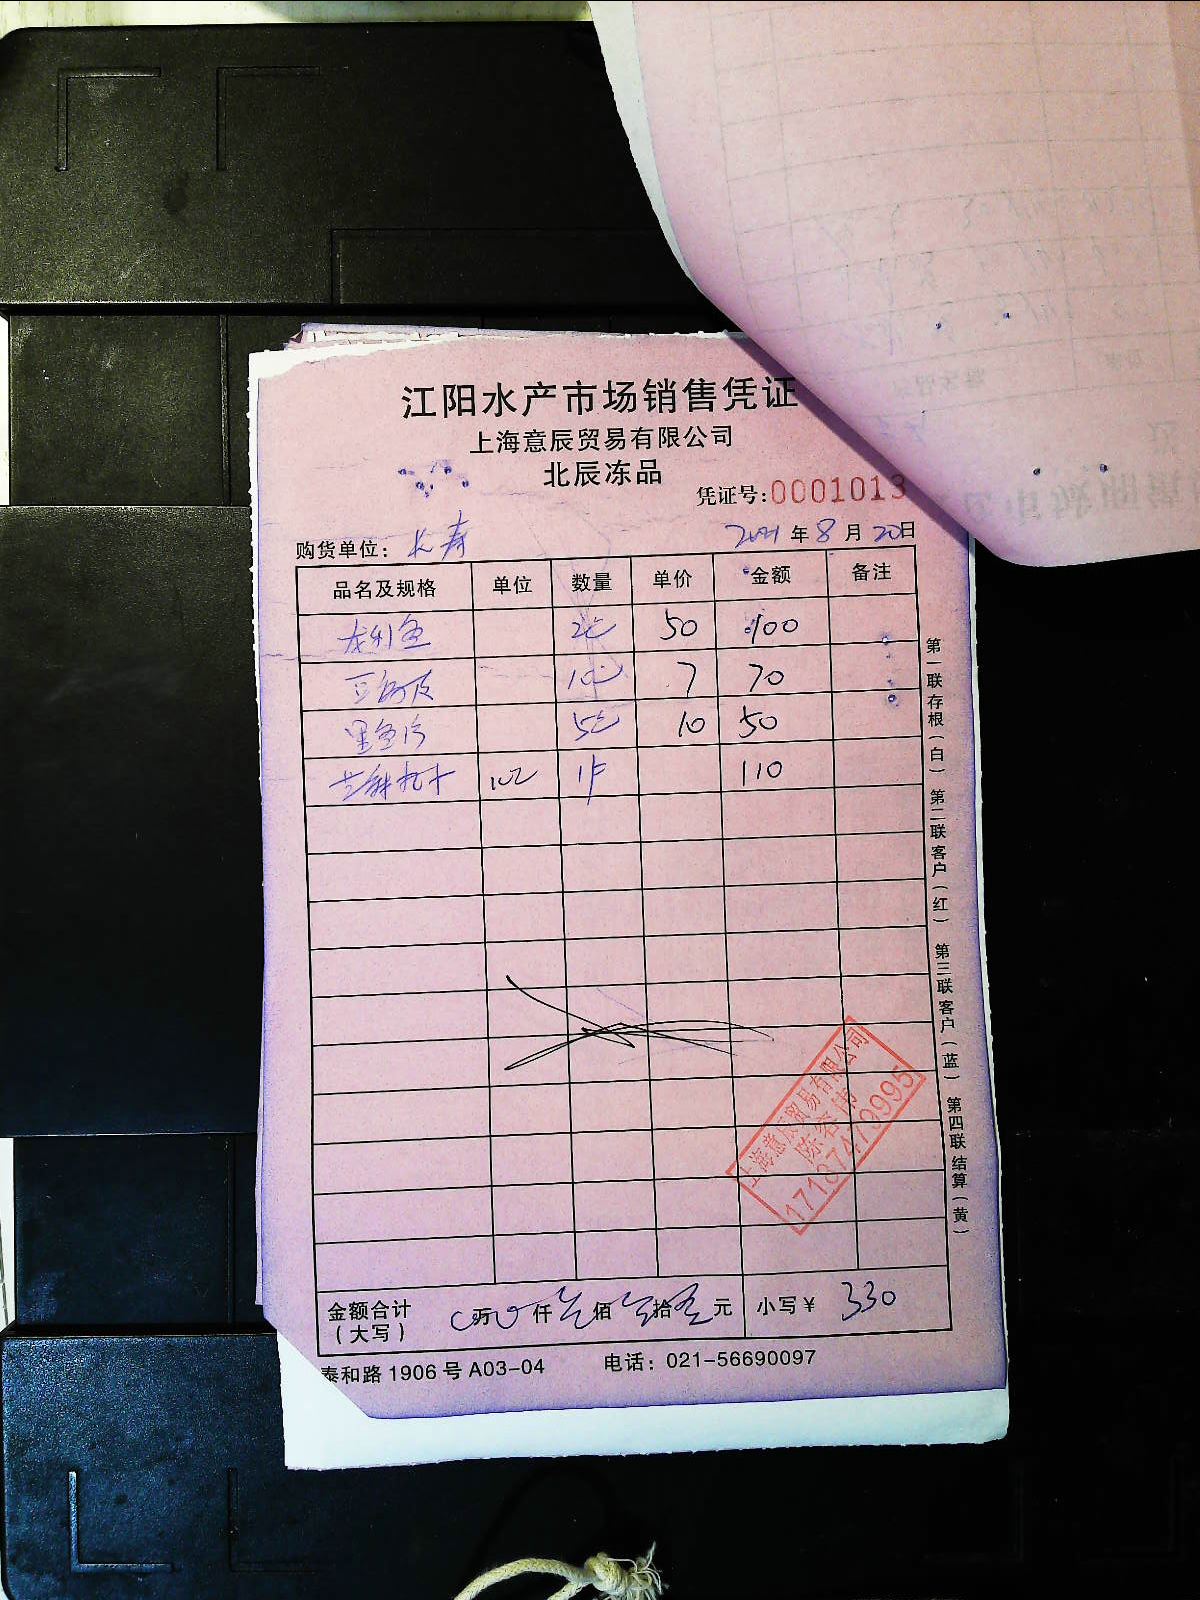 江阳水产市场销售凭证
上海意辰贸易有限公司
北辰冻品
凭证号:0001013
购货单位: 长寿 2021年8月20日
品名及规格 单位 数量 单价 金额 备注
龙利鱼 50 100
7 70
10 50
110
金额合计 万 仟 佰 拾 元 小写¥ 330
(大写)
泰和路1906号A03-04 电话: 021-56690097
第一联存根(白) 第二联客户(红) 第三联客户(蓝) 第四联结算(黄)
上海意辰贸易有限公司
17137479995